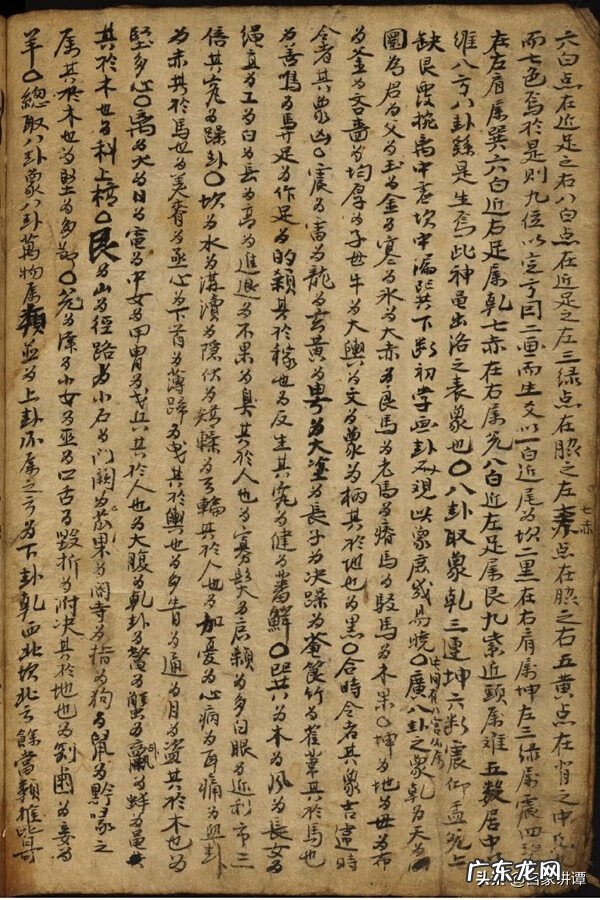 六白点在近足之右八白点在近足之左三緑点在脇之左赤点在脇之右五黄点在背之中
七赤
而七色焉於是則九位以定亨曰二画而生爻以一白近尾为坎二黒在右肩属坤左三緑属震四碧
在左肩属巽六白近右足属乾七赤在右属兑八白近左足属艮九紫近頭属难五数居中
维八方八卦繇是生焉此神黾出洛之表象也〇八卦取象乾三連坤六断震仰盂兑上
缺艮覆椀离中虚坎中满巽下断初学画卦视此象庶或易曉〇廣八卦之象乾为天为
圜为君为父为玉为金为寒为氷为大赤为良馬为老馬为瘠馬为駁馬为木果〇坤为地为母为布
为釜为吝嗇为均厚为子母牛为大輿为文为象为柄其於地也为黒〇合時令者其象吉違時
令者其象凶〇震为雷为龍为玄黄为旉为大塗为長子为决躁为蒼筤竹为萑葦其於馬也
为善鳴为馵足为作足为的顙其於稼也为反生其究为健为蕃鮮〇巽为木为风为長女为
绳直为工为白为長为高为進退为不果为臭其於人也为寡髮为広顙为多白眼为近利市三
倍其究为躁卦〇坎为水为溝瀆为隠伏为矯輮为弓輪其於人也为加憂为心病为耳痛为血卦
为赤其於馬也为美脊为亟心为下首为薄蹄为曳其於輿也为多眚为通为月为盗其於木也为
堅多心〇离为火为日为電为中女为甲胄为戈兵其於人也为大腹为乾卦为鳖为蟹为蠃为蚌为黾
其於木也为科上槁〇艮为山为徑路为小石为门闕为苽果为阍寺为指为狗为鼠为黔喙之
属其於木也为堅为多節〇兑为澤为小女为巫为口舌为毁折为附决其於地也为剛鹵为妾为
羊〇總取八卦象八卦萬物属類並为上卦不属之亨为下卦乾西北坎北云餘當類推皆可
头条@百家讲谭
广东龙网